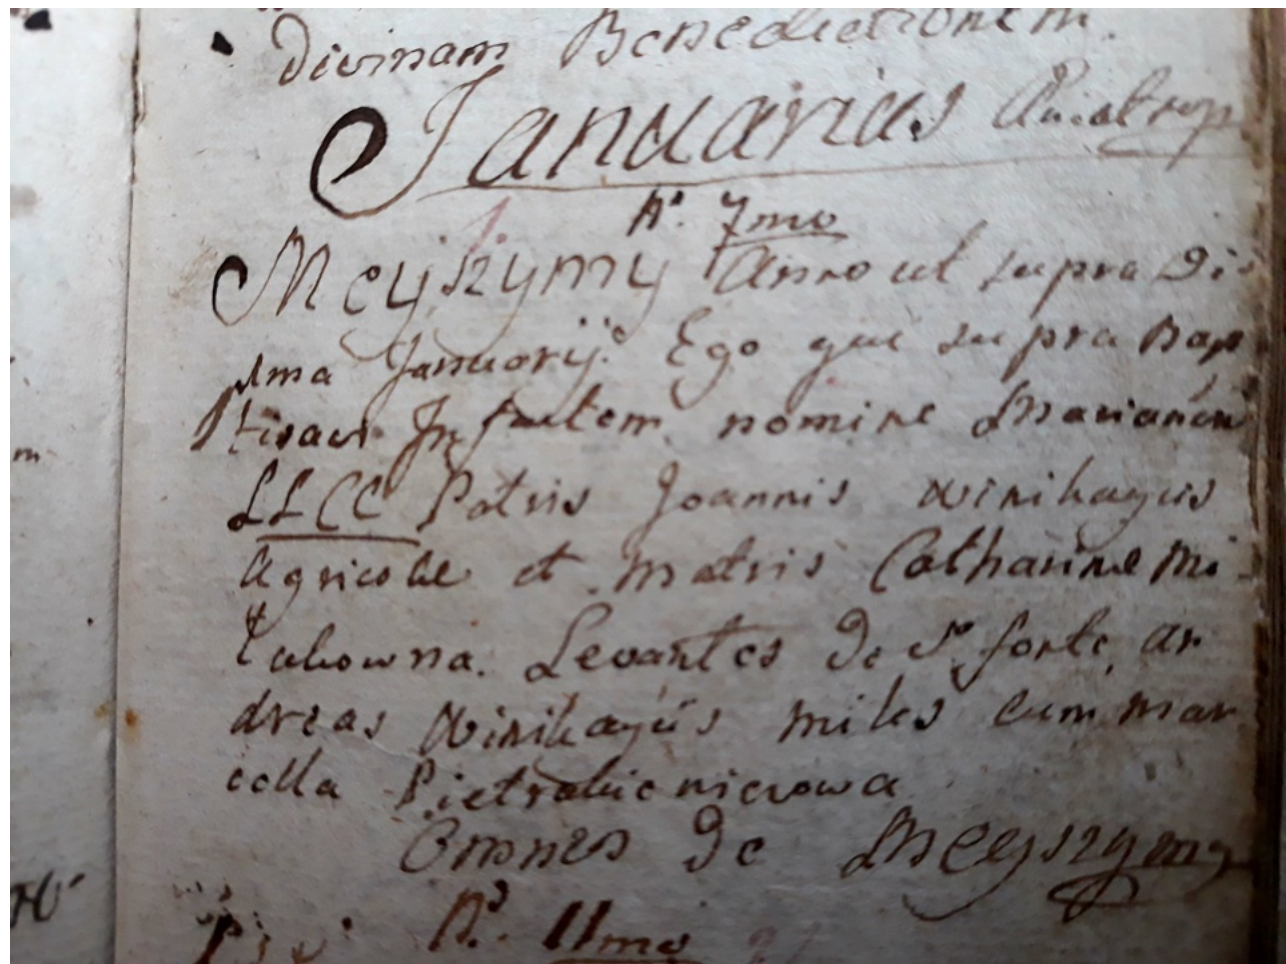 Divinam Benedictionem.
Januarius
A. 7mo
Meyszymy Anno ut supra Di
1ma Januarij. Ego qui supra Bap
tisavi Infantem nomine Mariannam
LLCC Patris Joannis Winikayus
Agricolae et Matris Catharinae Mi
tukowna. Levantes de S. fonte, An
dreas Winikayus Miles cum Mar
cella Pietrakieniczowa
Omnes de Meyszymy
A. 11mo